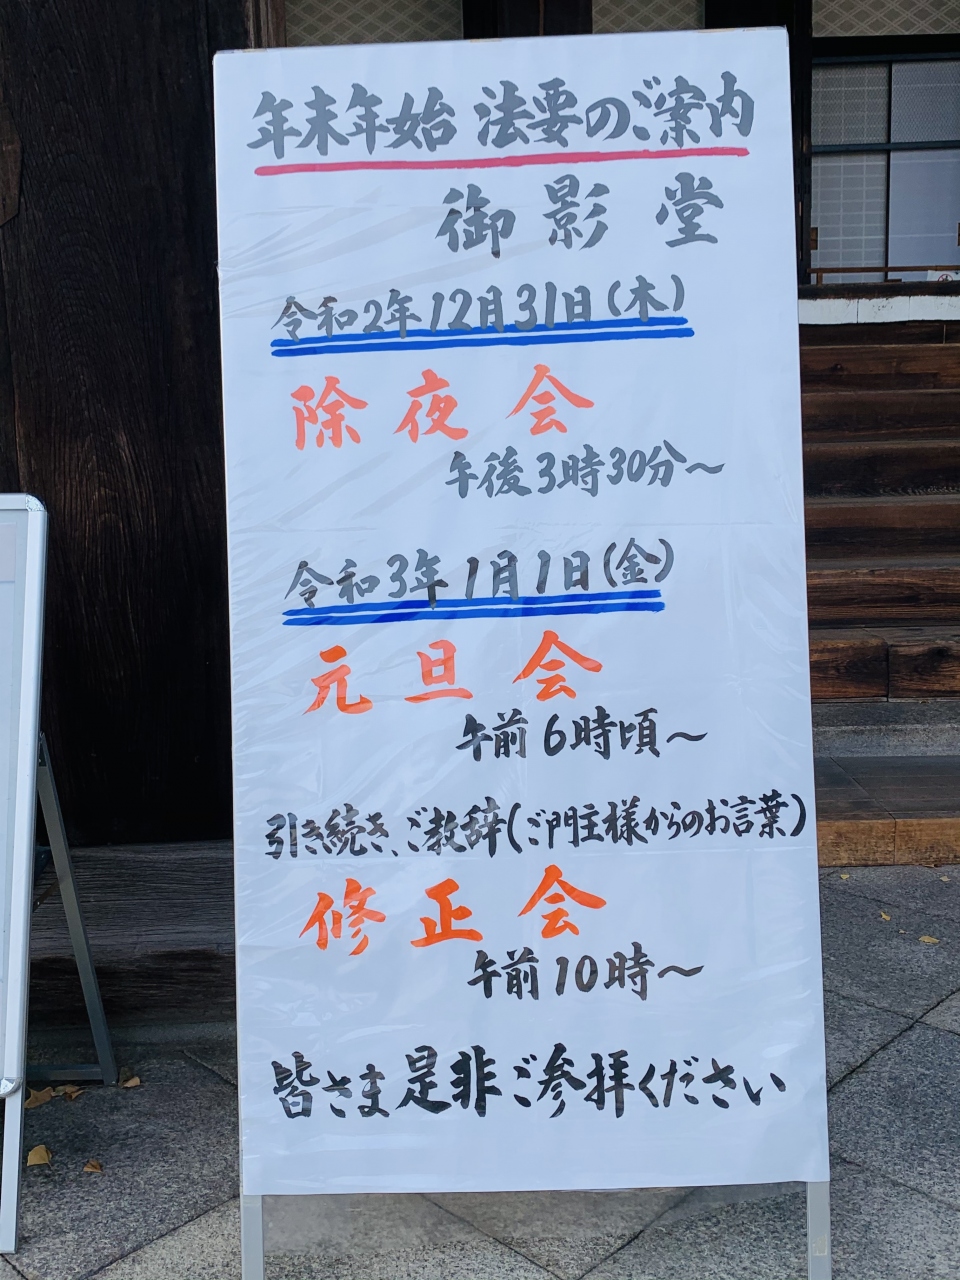 年末年始 法要のご案内
御影堂
令和2年12月31日(木)
除夜会
午後3時30分〜
令和3年1月1日(金)
元旦会
午前6時頃〜
引き続き、ご教辞(ご門主様からのお言葉)
修正会
午前10時〜
皆さま是非ご参拝ください